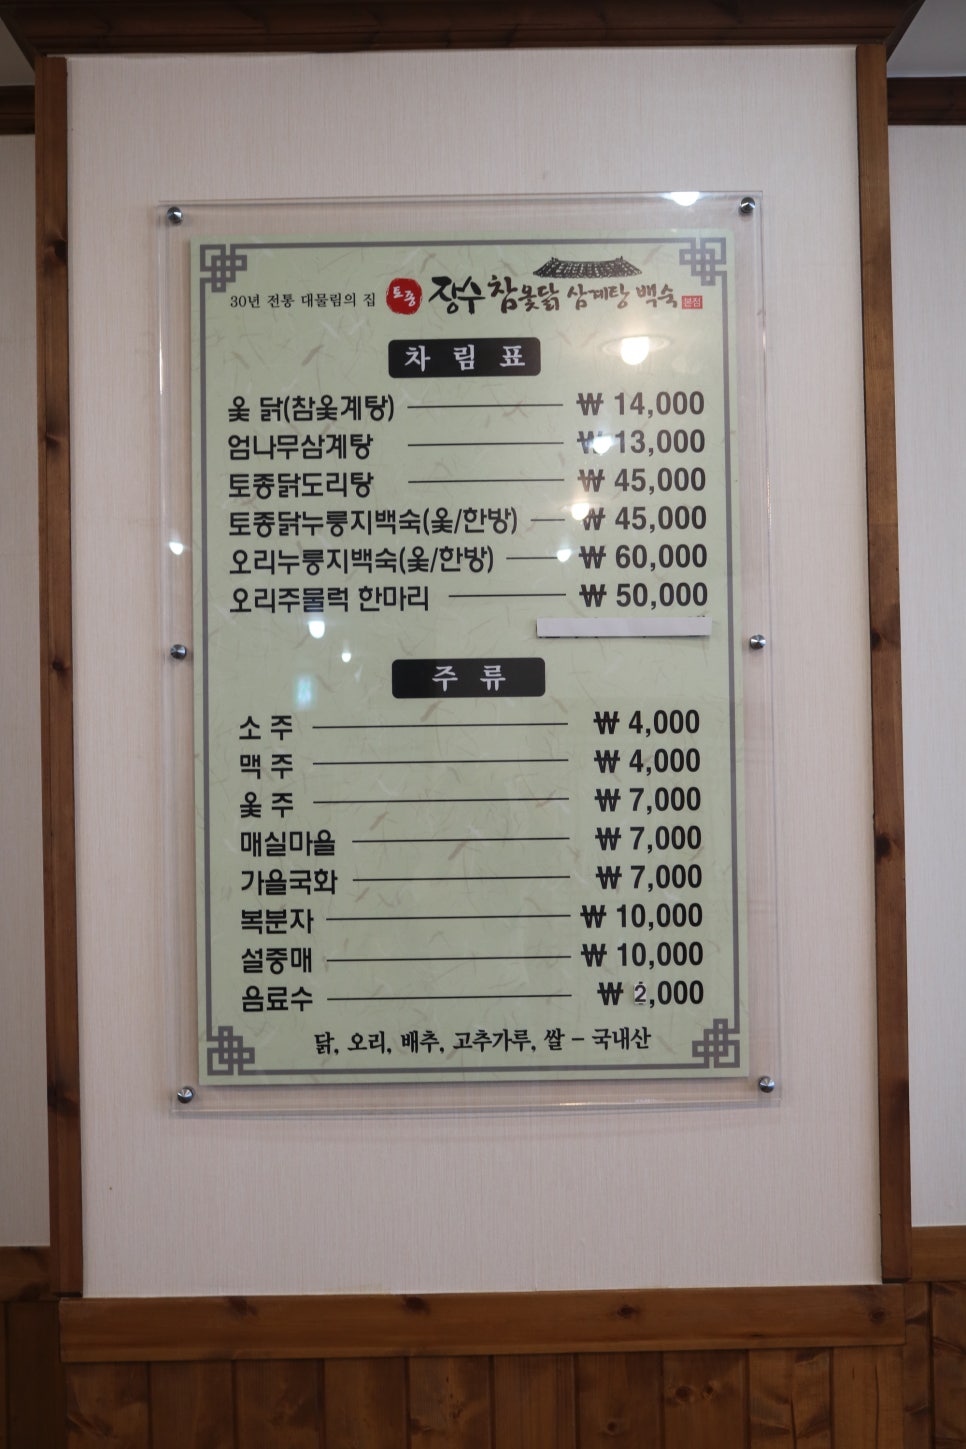 30년 전통 대물림의 집 토종 장수 참옻닭 삼계탕 백숙 본점
차 림 표
옻 닭(참옻계탕) ₩ 14,000
엄나무삼계탕 ₩ 13,000
토종닭도리탕 ₩ 45,000
토종닭누룽지백숙(옻/한방) ₩ 45,000
오리누룽지백숙(옻/한방) ₩ 60,000
오리주물럭 한마리 ₩ 50,000
주 류
소 주 ₩ 4,000
맥 주 ₩ 4,000
옻 주 ₩ 7,000
매실마을 ₩ 7,000
가을국화 ₩ 7,000
복분자 ₩ 10,000
설중매 ₩ 10,000
음료수 ₩ 2,000
닭, 오리, 배추, 고추가루, 쌀 - 국내산